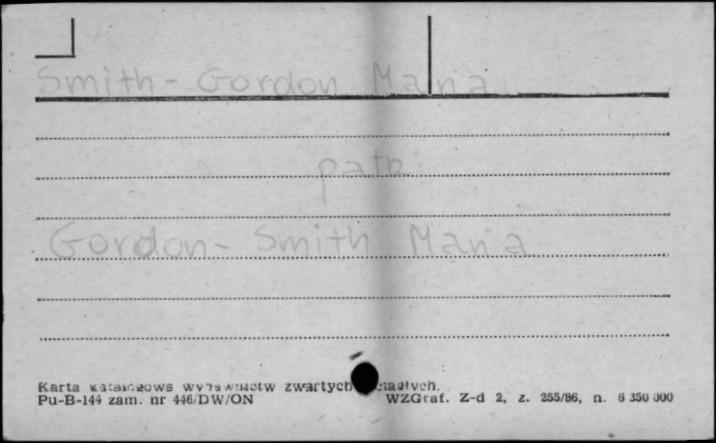 Smith - Gordon Maria
patrz
Gordon - Smith Maria
Karta katalogowa wydawnictw zwartych i ciągłych.
Pu-B-144 zam. nr 446/DW/ON WZGraf. Z-d 2, z. 255/86, n. 6 350 000